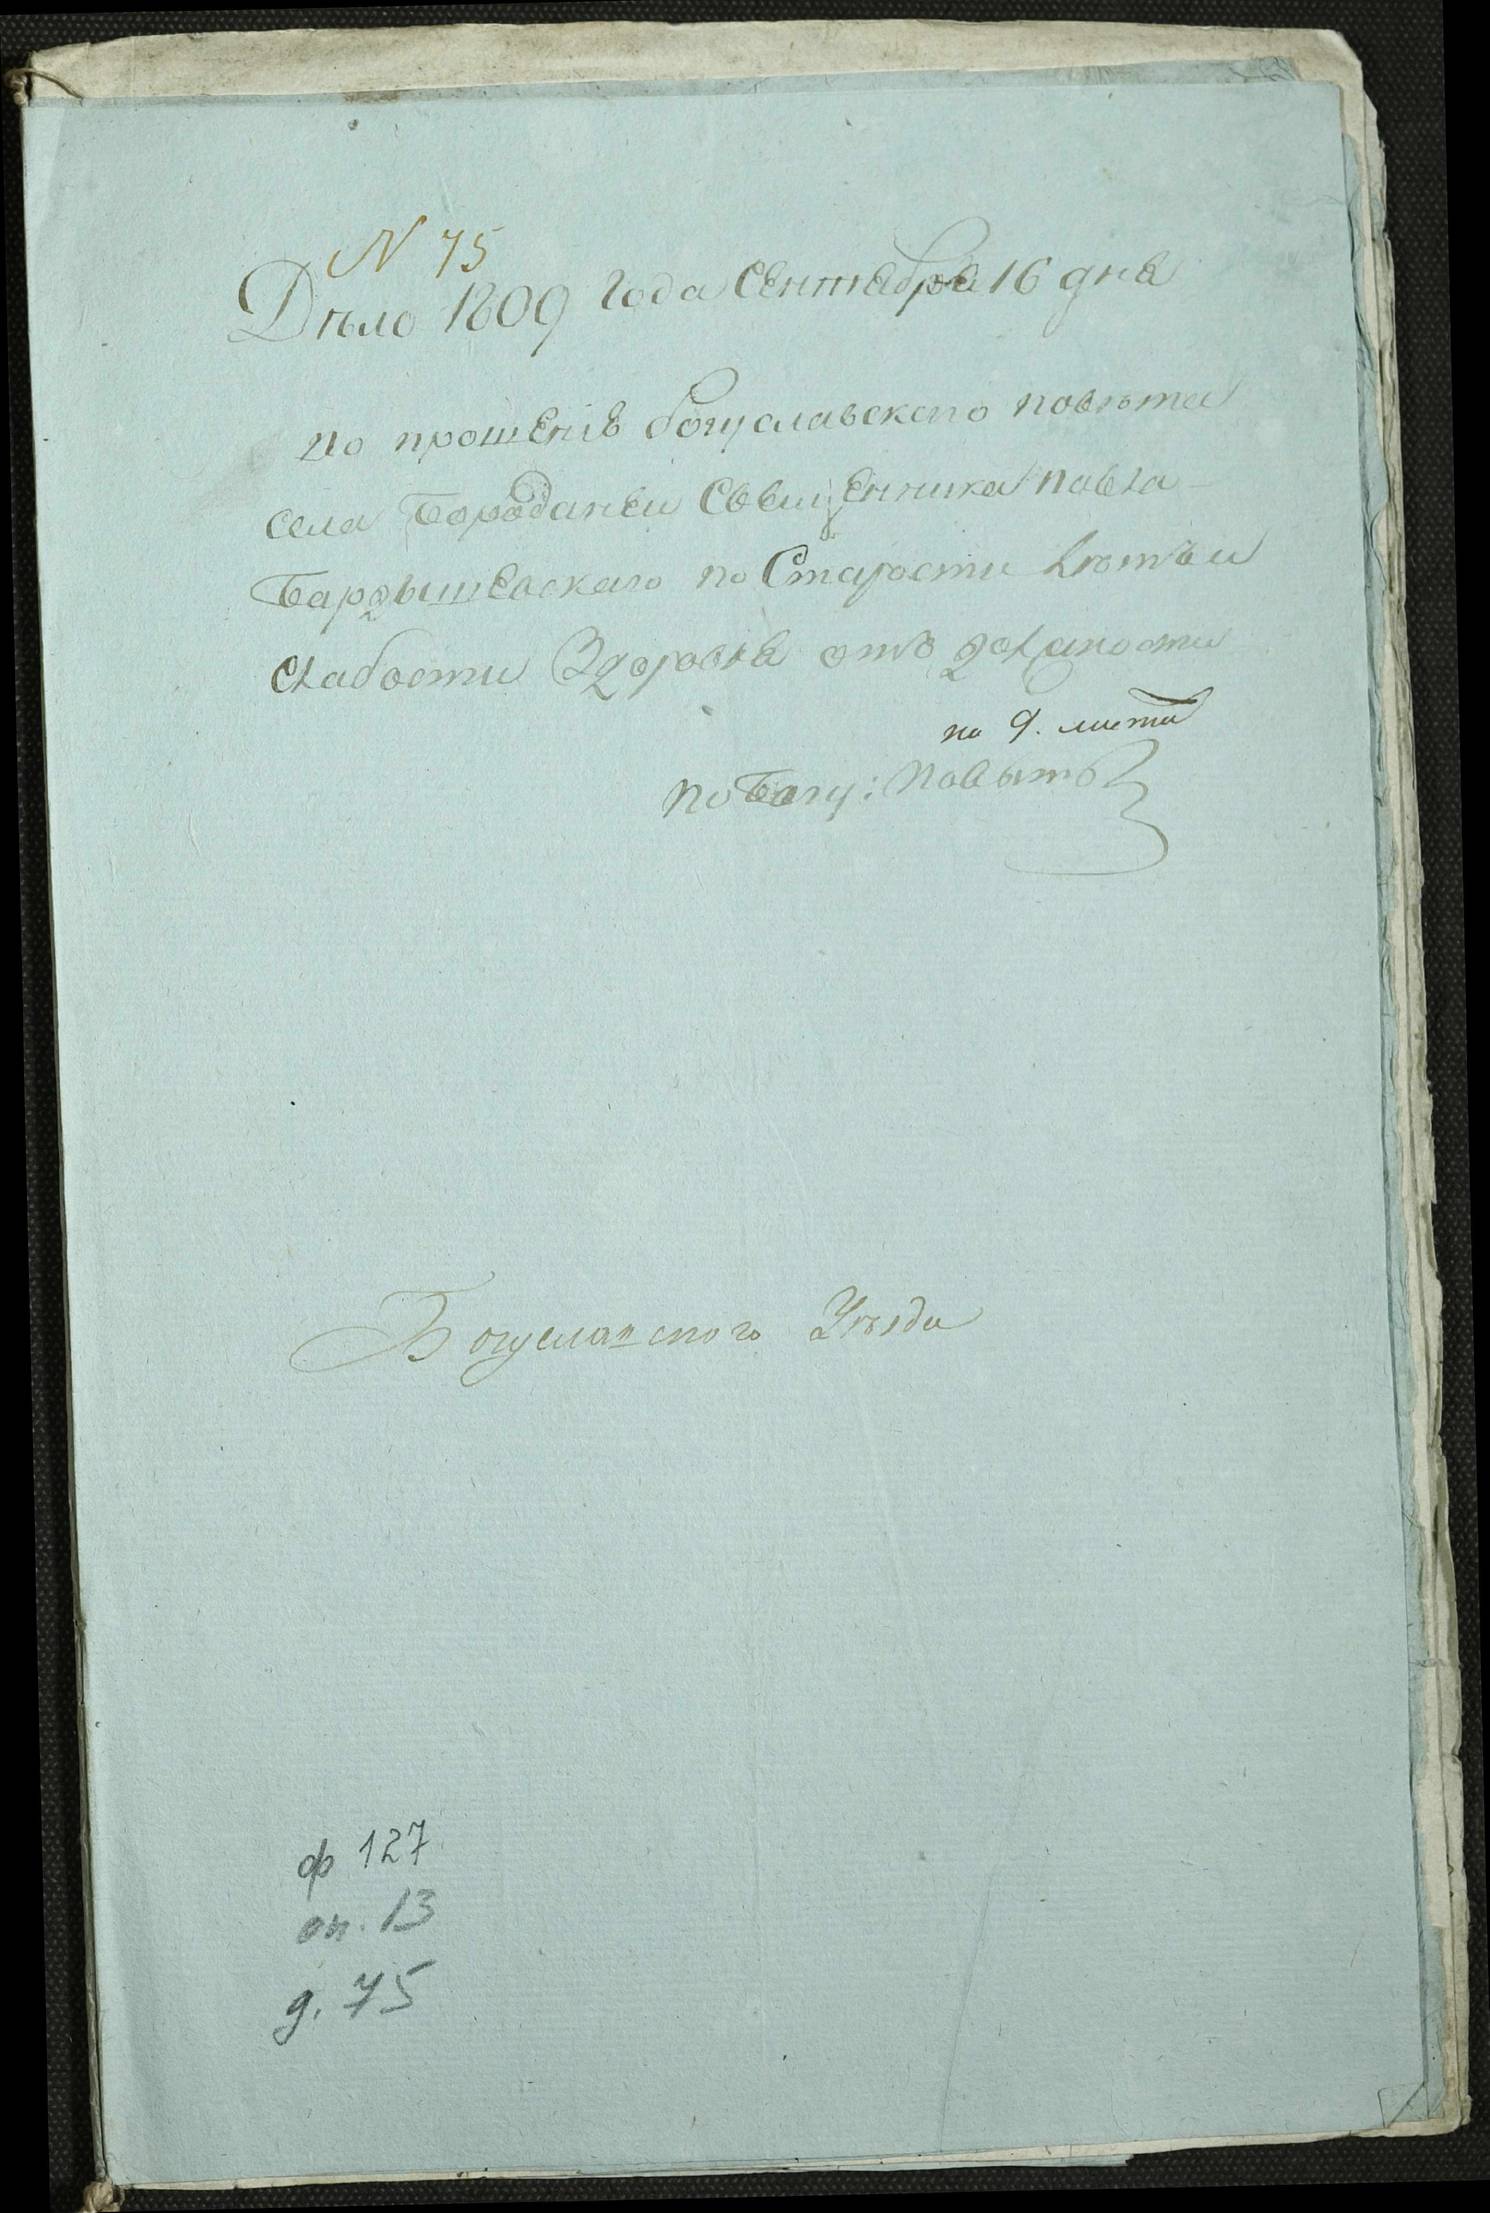 N 75
Дѣло 1809 года Сентября 16 дня
по прошенію богуславского повѣта
села Бороданеи Священника павла
Бардышевскаго по Старости лѣтъ и
слабости Здоровя отъ должности
на 9. листа
по Богу: повытью
Богуславского Уѣзда
ф 127
оп. 13
д. 75